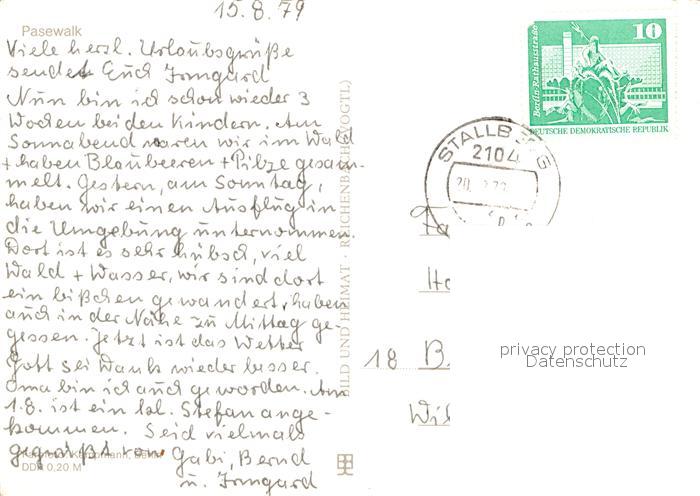 15.8.79
Pasewalk
Viele herzl. Urlaubsgrüße
sendet Euch Irmgard
Nun bin ich schon wieder 3
Wochen bei den Kindern. Am
Sonnabend waren wir im Wald
+ haben Blaubeeren + Pilze gesam-
melt. Gestern, am Sonntag,
haben wir einen Ausflug in
die Umgebung unternommen.
Dort ist es sehr hübsch, viel
Wald + Wasser, wir sind dort
ein bißchen gewandert, haben
auch in der Nähe zu Mittag ge-
gessen. Jetzt ist das Wetter
Gott sei Dank wieder besser.
Oma bin ich auch geworden. Am
1.8. ist ein kl. Stefan ange-
kommen. Seid vielmals
gegrüßt von Gabi, Bernd
u. Irmgard
DDR 0,20 M
BILD UND HEIMAT · REICHENBACH (VOGTL)
10
Berlin-Rathausstraße
DEUTSCHE DEMOKRATISCHE REPUBLIK
2104
18 B
privacy protection
Datenschutz